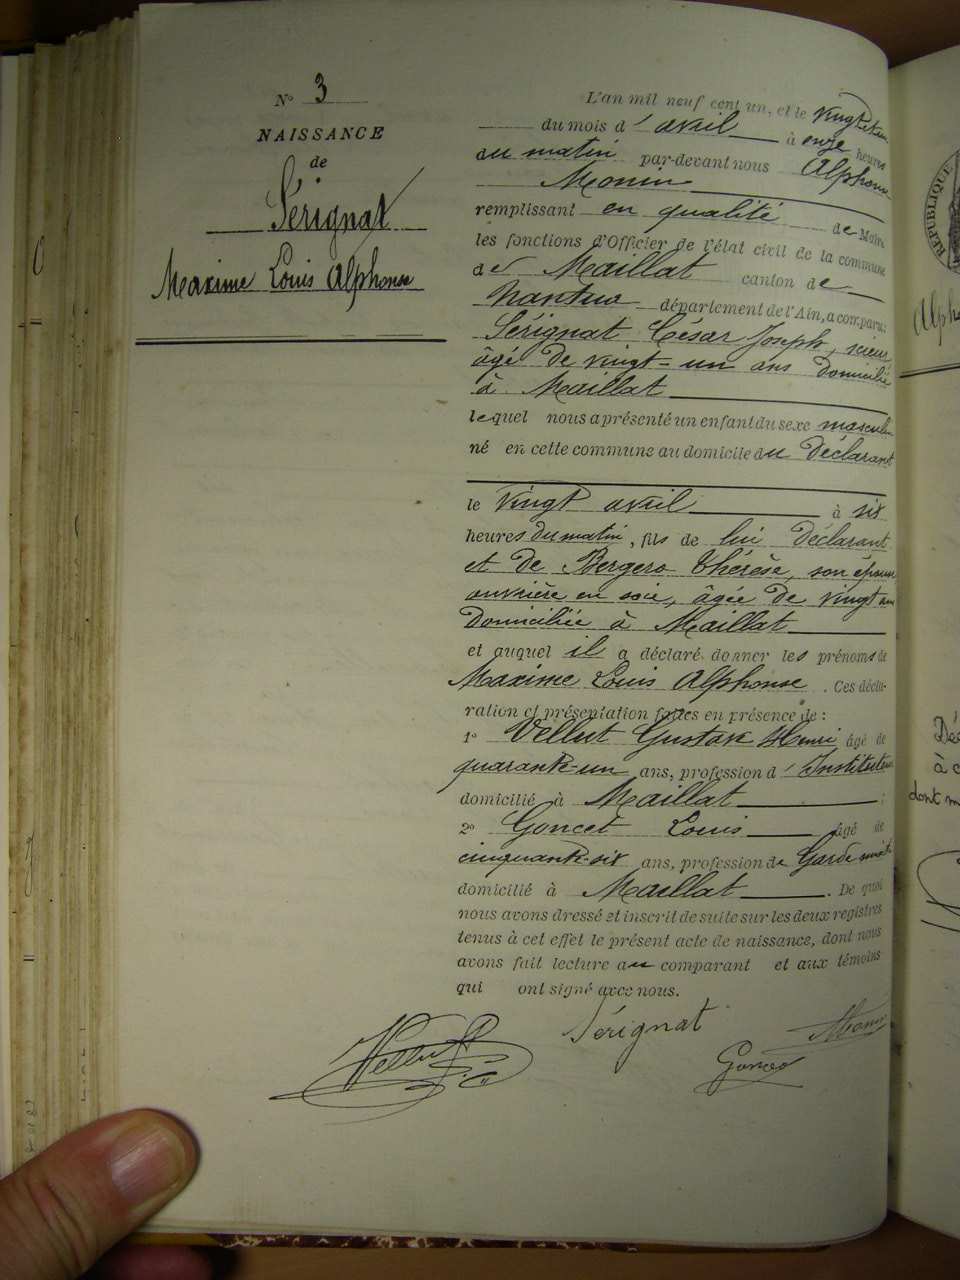 N° 3
NAISSANCE
de
Sérignat
Maxime Louis Alphonse
L'an mil neuf cent un, et le vingt et un
du mois d'avril à onze heures
du matin par-devant nous Alphonse
Monin
remplissant en qualité de Maire
les fonctions d'Officier de l'état civil de la commune
de Maillat canton de
Nantua département de l'Ain, a comparu:
Sérignat César Joseph, scieur
âgé de vingt-un ans domicilié
à Maillat
lequel nous a présenté un enfant du sexe masculin
né en cette commune au domicile du déclarant
le vingt avril à six
heures du matin, fils de lui déclarant
et de Bergero Thérèse, son épouse
ouvrière en soie, âgée de vingt ans
domiciliée à Maillat
et auquel il a déclaré donner les prénoms de
Maxime Louis Alphonse. Ces décla-
ration et présentation faites en présence de:
1° Vellut Gustave Henri, âgé de
quarante-un ans, profession d'Instituteur
domicilié à Maillat;
2° Goncet Louis âgé de
cinquante-six ans, profession de Garde
domicilié à Maillat. De quoi
nous avons dressé et inscrit de suite sur les deux registres
tenus à cet effet le présent acte de naissance, dont nous
avons fait lecture au comparant et aux témoins
qui ont signé avec nous.
Vellut Sérignat Monin
Goncet
RÉPUBLIQUE
Alpho
Dé
à c
dont m